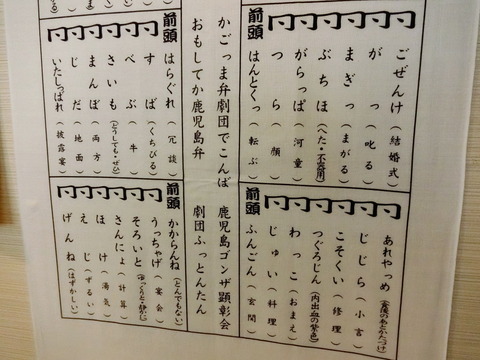 同 ごぜんけ(結婚式)
同 がっ(叱る)
同 まぎっ(まがる)
同 ぶちほ(へた・不器用)
同 がらっぱ(河童)
同 つら(顔)
前頭 はんとくっ(転ぶ)
あれやっめ
同 じじら(小言)
同 こそくい(修理)
同 つぐろじん(内出血の紫色)
同 わっこ(おまえ)
同 じゅい(料理)
前頭 ふんごん(玄関)
かごっま弁劇団でこんぱ 鹿児島ゴンザ顕彰会
おもしてか鹿児島弁 劇団ふっとんたん
前頭 はらぐれ(冗談)
同 すば(くちびる)
同 べぶ(牛)
同 さいも(どうしても・ぜひ)
同 まんぼ(両方)
同 じだ(地面)
同 いたしっばれ(披露宴)
前頭 かからんね(とんでもない)
同 うっちゃげ(宴会)
同 そろいと(ゆっくりと・静かに)
同 さんにょ(計算)
同 ほけ(湯気)
同 えじ(ずるい)
同 げんね(はずかしい)